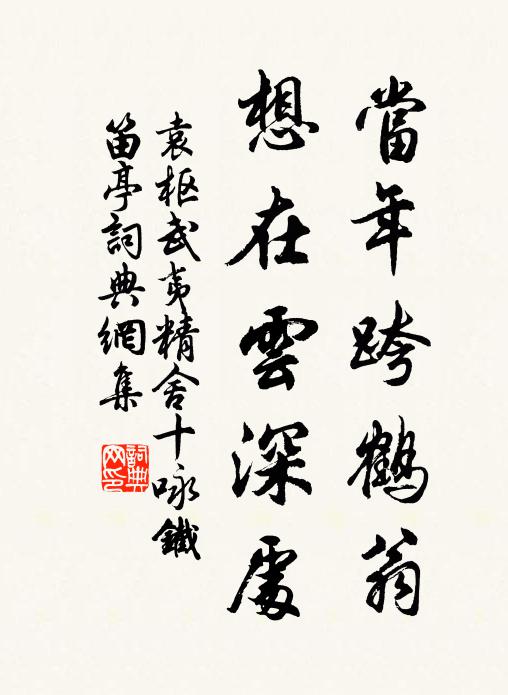 當年跨鶴翁
想在雲深處
袁枢武夷精舍十咏鐵
笛亭詞典網集
詞典
网印